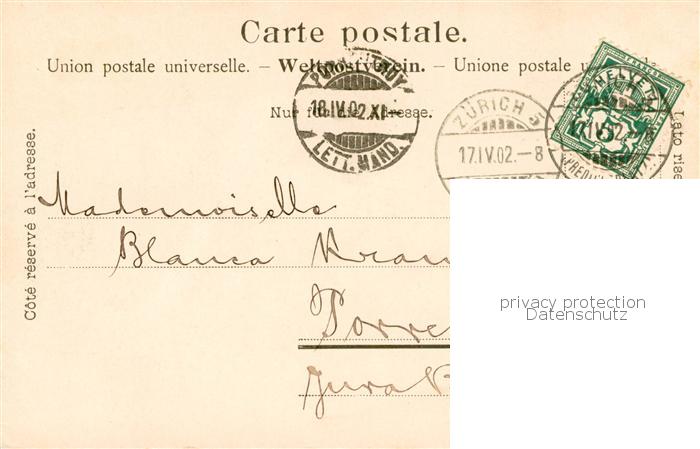 Carte postale.
Union postale universelle. – Weltpostverein. – Unione postale
Nur für die Adresse.
18.IV.02.XI–
LETT. MAND.
ZÜRICH
17.IV.02.–8
HELVETIA
5
Côté réservé à l'adresse.
Lato rise
Mademoiselle
Blanca Kram
Porre
Jura B
privacy protection
Datenschutz